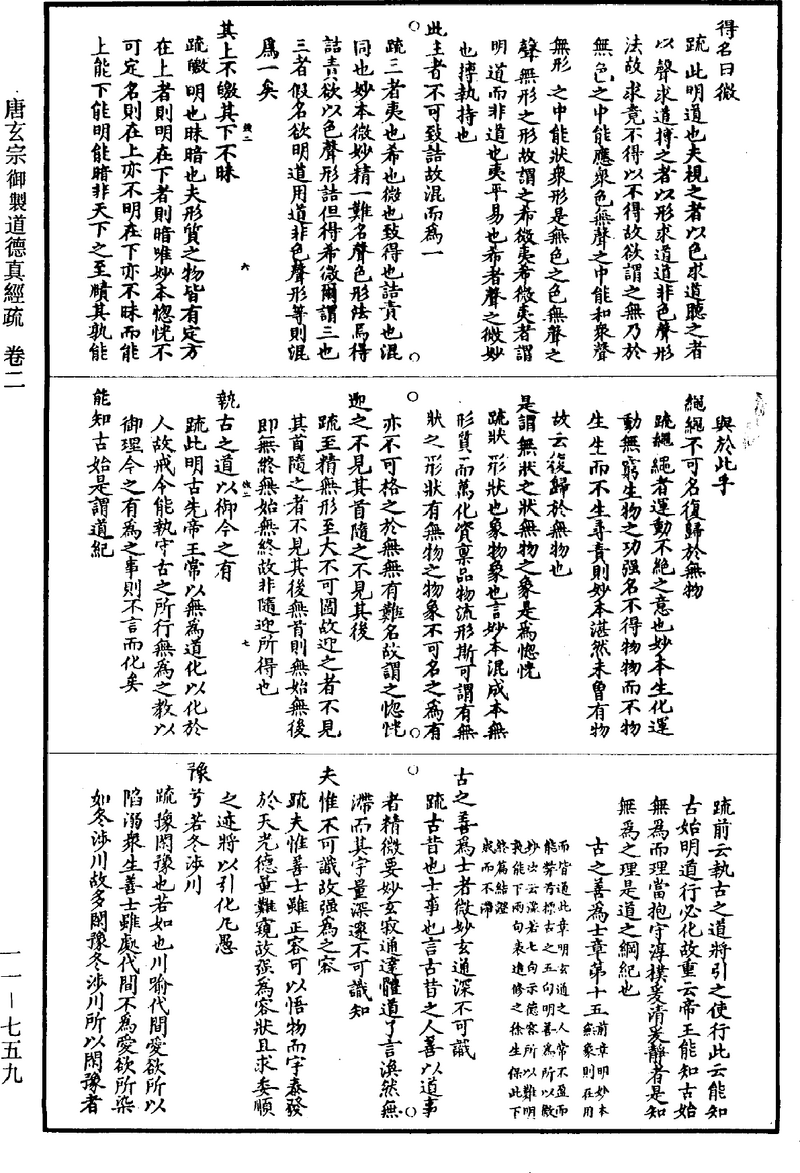 得名曰微
疏此明道也夫視之者以色求道聽之者
以聲求道摶之者以形求道道非色聲形
法故求竟不得以不得故欲謂之無乃於
無色之中能應衆色無聲之中能和衆聲
無形之中能狀衆形是無色之色無聲之
聲無形之形故謂之希微夷希微夷者謂
明道而非道也夷平易也希者聲之微妙
也摶執持也
此三者不可致詰故混而為一
疏三者夷也希也微也致得也詰責也混
同也妙本微妙精一難名聲色形法焉得
詰責欲以色聲形詰但得希微爾謂三也
三者假名欲明道用道非色聲形等則混
為一矣
其上不皦其下不昧
疏皦明也昧暗也夫形質之物皆有定方
在上者則明在下者則暗唯妙本惚恍不
可定名則在上亦不明在下亦不昧而能
上能下能明能暗非天下之至賾其孰能
六
與於此乎
繩繩不可名復歸於無物
疏繩繩者運動不絕之意也妙本生化運
動無窮生物之功强名不得物物而不物
生生而不生尋責則妙本湛然未曾有物
故云復歸於無物也
是謂無狀之狀無物之象是為惚恍
疏狀形狀也象物象也言妙本混成本無
形質而萬化資稟品物流形斯可謂有無
狀之形狀有無物之物象不可名之為有
亦不可格之於無無有難名故謂之惚恍
迎之不見其首隨之不見其後
疏至精無形至大不可圍故迎之者不見
其首隨之者不見其後無首則無始無後
即無終無始無終故非隨迎所得也
執古之道以御今之有
疏此明古先帝王常以無為道化以化於
人故戒今能執守古之所行無為之教以
御理今之有為之事則不言而化矣
能知古始是謂道紀
七
疏前云執古之道將引之使行此云能知
古始明道行必化故重云帝王能知古始
無為而理當抱守淳樸爰清爰靜者是知
無為之理是道之綱紀也
古之善為士章第十五
前章明妙本
無象則在用
而皆通此章明玄道之人常不盈而
能弊首標古之五句明善為所以微
妙次云豫若七句示德容所以難明
孰能下兩句表進修之徐生保此下
終篇結證
成而不滯
古之善為士者微妙玄通深不可識
疏古昔也士事也言古昔之人善以道事
者精微要妙玄寂通達體道了言渙然無
滯而其宇量深邃不可識知
夫惟不可識故强為之容
疏夫惟善士雖正容可以悟物而宇泰發
於天光德量難窺故强為容狀且求委順
之迹將以引化凡愚
豫兮若冬涉川
疏豫閑豫也若如也川喻代間愛欲所以
陷溺衆生善士雖處代間不為愛欲所染
如冬涉川故多閑豫冬涉川所以閑豫者
唐玄宗御製道德真經疏　卷二
一一－七五九